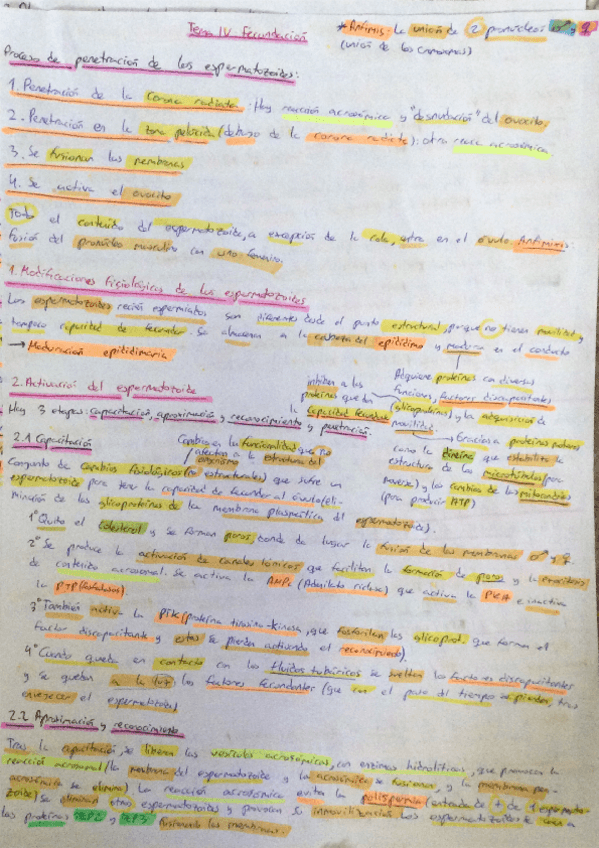 Tema IV Fecundación
* Anfimixis: La unión de 2 pronúcleos ♂ y ♀
(unión de los cromosomas)
Proceso de penetración de los espermatozoides:
1. Penetración de la corona radiada: Hay reacción acrosómica y "desnudación" del ovocito.
2. Penetración en la zona pelúcida (debajo de la corona radiada): otra reacc. acrosómica
3. Se fusionan las membranas
4. Se activa el ovocito
Todo el contenido del espermatozoide, a excepción de la cola, entra en el óvulo. Anfimixis:
fusión del pronúcleo masculino con uno femenino.
1. Modificaciones fisiológicas de los espermatozoides
Los espermatozoides recién espermiados son diferentes desde el punto estructural, porque no tienen movilidad y
tampoco capacidad de fecundar. Se almacenan a la cabeza del epidídimo y maduran en el conducto
→ Maduración epididimaria
Adquiere proteínas con diversas
funciones, factores discapacitantes
(glicoproteínas) y la adquisición de
movilidad.
inhiben a las
proteínas que dan
la capacidad fecundante
→ Gracias a proteínas motoras
como la dineína que estabiliza la
estructura de los microtúbulos (para
moverse) y los cambios de las mitocondrias
(para producir ATP)
2. Activación del espermatozoide
Hay 3 etapas: capacitación, aproximación y reconocimiento y penetración.
2.1 Capacitación
Cambios en la funcionalidad que no
afectan a la estructura del
organismo
Conjunto de cambios fisiológicos (no estructurales) que sufre un
espermatozoide para tener la capacidad de fecundar al óvulo (eli-
minación de las glicoproteínas de la membrana plasmática del espermatozoide).
1º Quito el colesterol y se forman poros, donde da lugar la fusión de las membranas ♂ y ♀
2º Se produce la activación de canales iónicos que facilitan la formación de poros y la
de contenido acrosomal. Se activa la (Adenilato ciclasa) que activa la PKA e inactiva
la PTP (fosfatasas)
3º También activa la PTK (proteína tirosina-kinasa, que fosforilan las glicoprot. que forman el
factor discapacitante y estas se pierden activando el reconocimiento).
4º Cuando queda en contacto con los fluidos tubáricos se sueltan los factores discapacitantes
y se quedan a la luz los factores fecundantes (que con el paso del tiempo se pierden, tras
envejecer el espermatozoide)
2.2 Aproximación y reconocimiento
Tras la capacitación, se liberan las vesículas acrosómicas, con enzimas hidrolíticas, que provocan la
reacción acrosomal (la membrana del espermatozoide y la acrosómica se fusionan, y la membrana
acrosómica se elimina). La reacción acrosómica evita la polispermia (entrada de + de 1 espermato-
zoide) se eliminan otros espermatozoides y provocan su inmovilización. Los espermatozoides se unen a
las proteínas ZP2 y ZP3 fusionando las membranas.